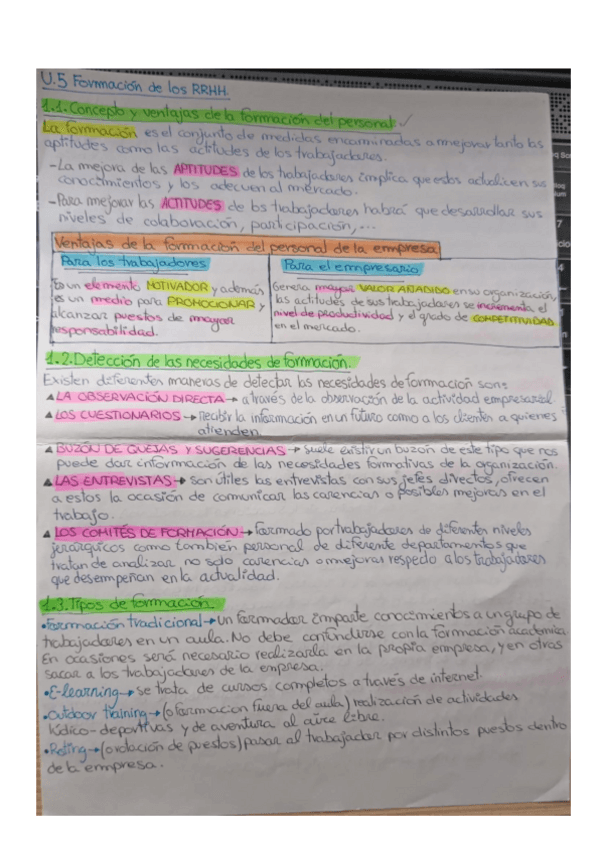 U.5 Formación de los RRHH.
1.1. Concepto y ventajas de la formación del personal. ✓
La formación es el conjunto de medidas encaminadas a mejorar tanto las
aptitudes como las actitudes de los trabajadores.
-La mejora de las APTITUDES de los trabajadores implica que estos actualicen sus
conocimientos y los adecuen al mercado.
-Para mejorar las ACTITUDES de los trabajadores habrá que desarrollar sus
niveles de colaboración, participación,...
Ventajas de la formación del personal de la empresa
Para los trabajadores
Es un elemento MOTIVADOR y además
es un medio para PROMOCIONAR y
alcanzar puestos de mayor
responsabilidad.
Para el empresario
Genera mayor VALOR AÑADIDO en su organización,
las actitudes de sus trabajadores se incrementa el
nivel de productividad y el grado de COMPETITIVIDAD
en el mercado.
1.2. Detección de las necesidades de formación.
Existen diferentes maneras de detectar las necesidades de formación son:
▲ LA OBSERVACIÓN DIRECTA → a través de la observación de la actividad empresarial
▲ LOS CUESTIONARIOS → Recibir la información en un futuro como a los clientes a quienes
atienden
▲ BUZÓN DE QUEJAS Y SUGERENCIAS → suele existir un buzón de este tipo que nos
puede dar información de las necesidades formativas de la organización.
▲ LAS ENTREVISTAS → son útiles las entrevistas con sus jefes directos, ofrecen
a estos la ocasión de comunicar las carencias o posibles mejoras en el
trabajo.
▲ LOS COMITÉS DE FORMACIÓN → formado por trabajadores de diferentes niveles
jerárquicos como también personal de diferente departamentos que
tratan de analizar no solo carencias o mejoras respecto a los trabajadores
que desempeñan en la actualidad.
1.3. Tipos de formación.
•Formación tradicional → un formador imparte conocimientos a un grupo de
trabajadores en un aula. No debe confundirse con la formación académica.
En ocasiones será necesario realizarla en la propia empresa, y en otras
sacar a los trabajadores de la empresa.
•E-learning → se trata de cursos completos a través de internet.
•Outdoor training → (o formacion fuera del aula) realización de actividades
lúdico-deportivas y de aventura al aire libre.
•Roting → (o rotación de puestos) pasar al trabajador por distintos puestos dentro
de la empresa.